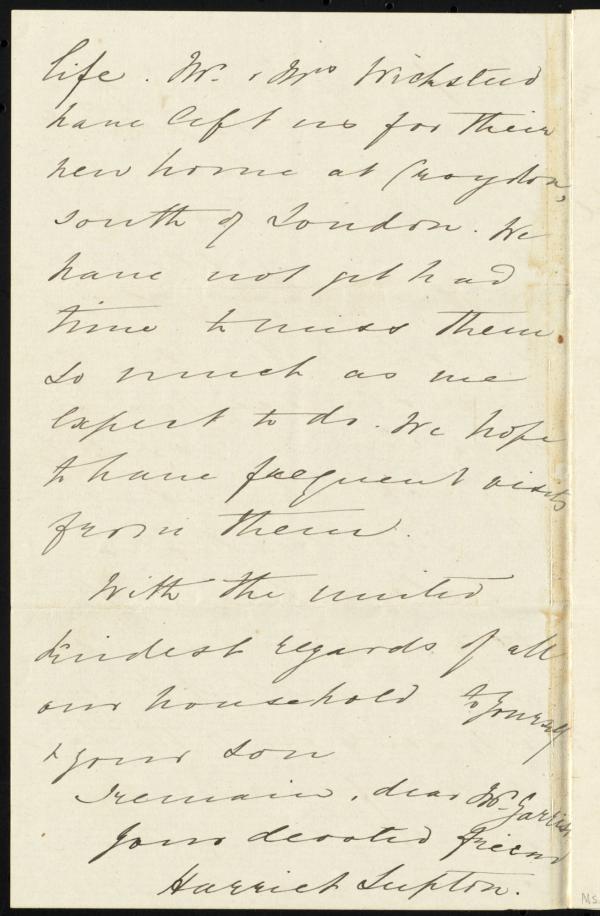 life. Mr. & Mrs Wicksteed
have left us for their
new home at Croydon,
south of London. We
have not yet had
time to miss them
so much as we
expect to do. We hope
to have frequent visits
from them.
With the united
kindest regards of all
our household to yourself
& your son
I remain, dear Mr. Garrison
Your devoted friend
Harriet Lupton.
Ms.